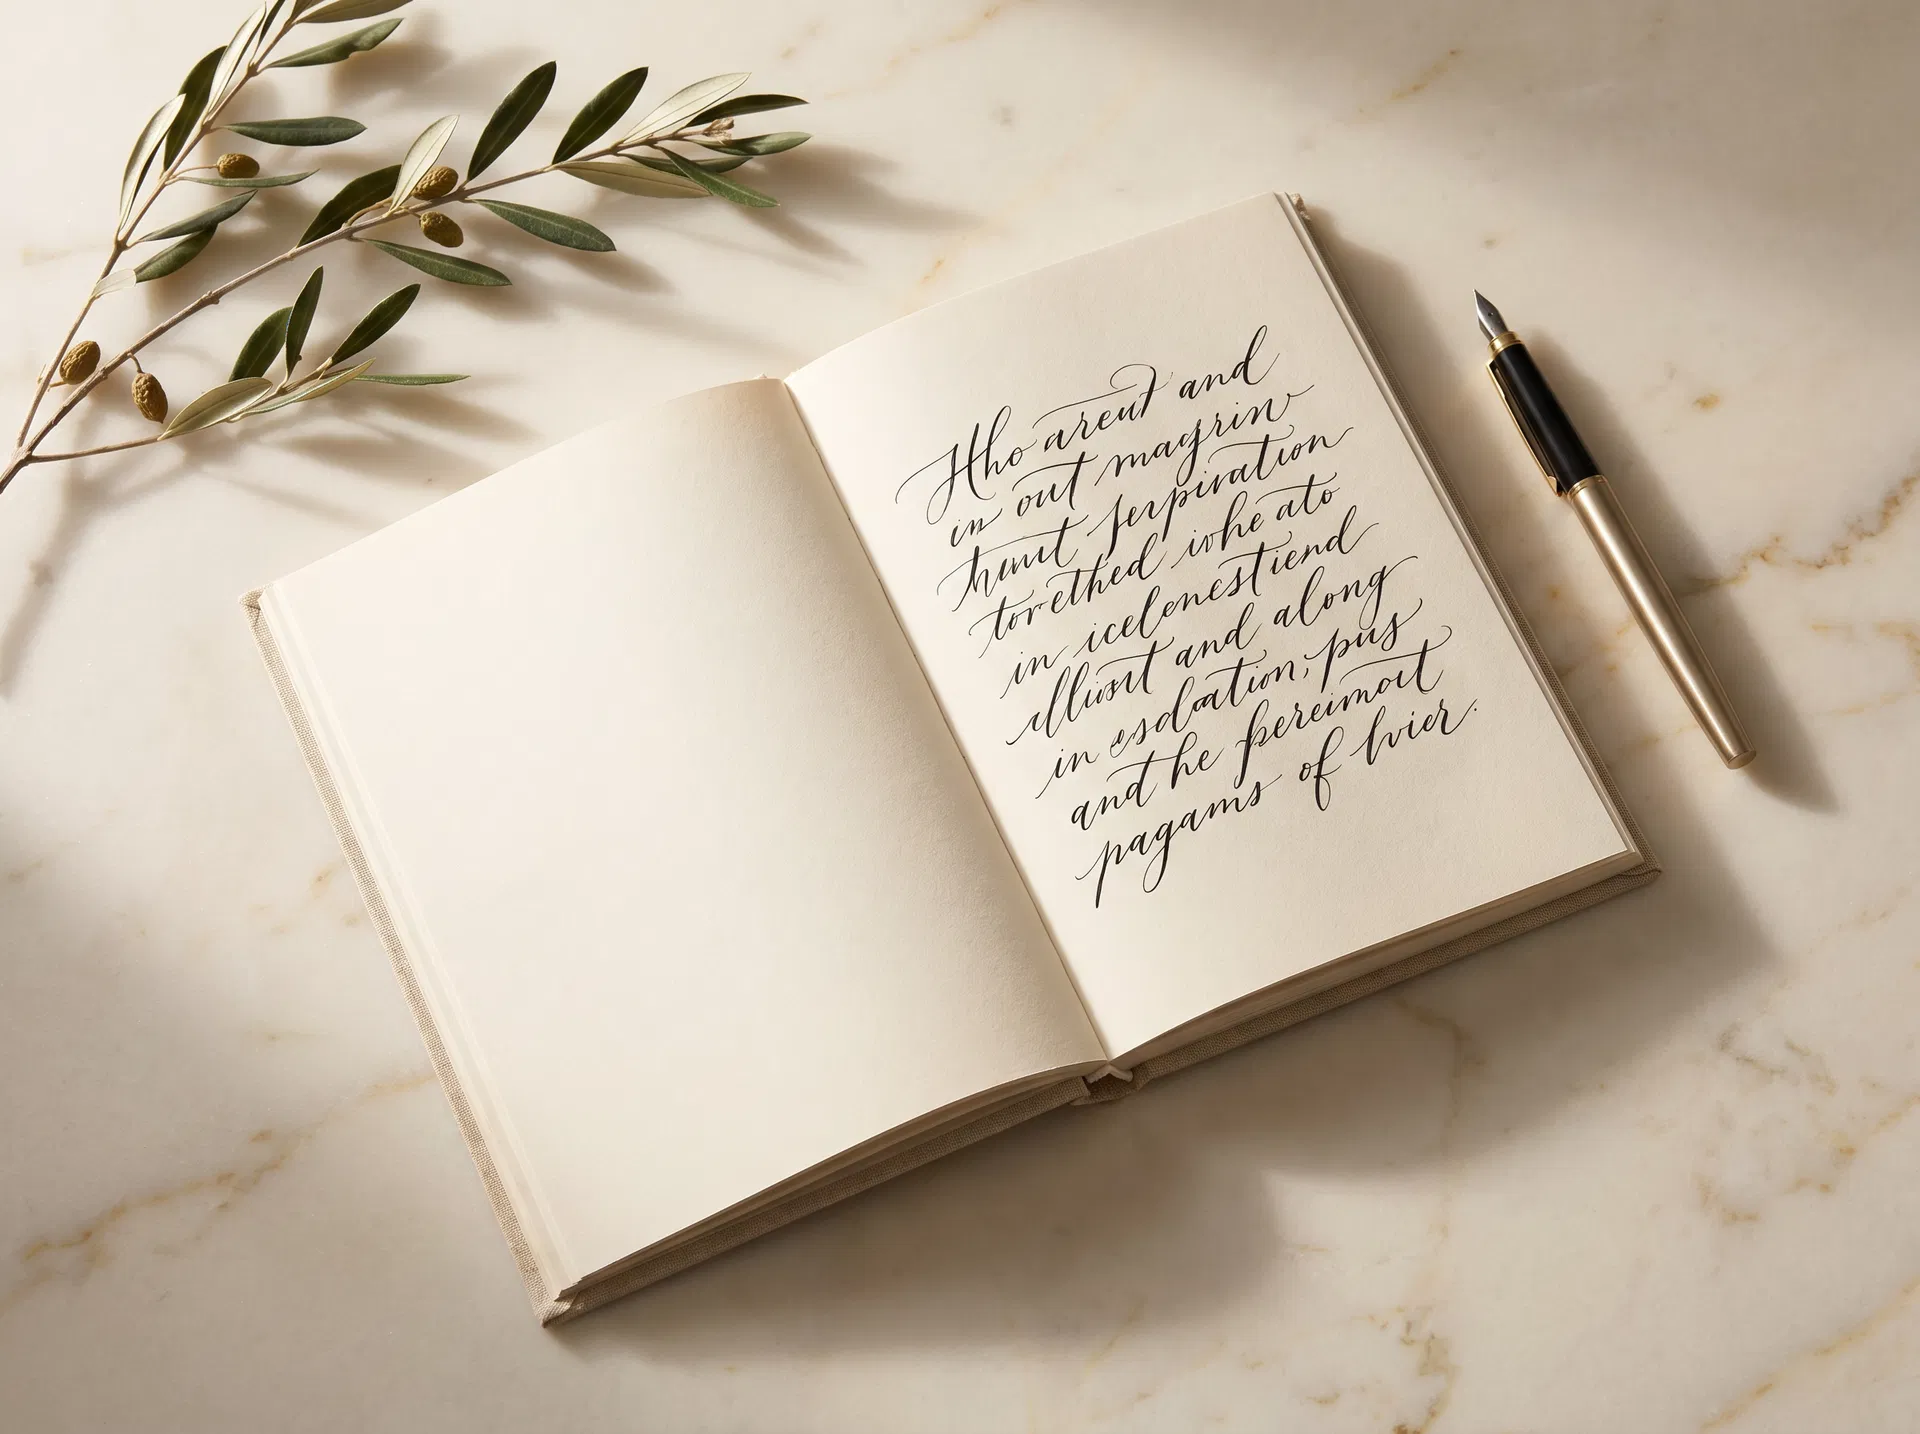 Hho areut and
in out magrin
hunt serpiration
torethed iohe ato
in icelenestiend
illusrt and along
in esdoation, pus
and he pereimort
pagams of lvier.